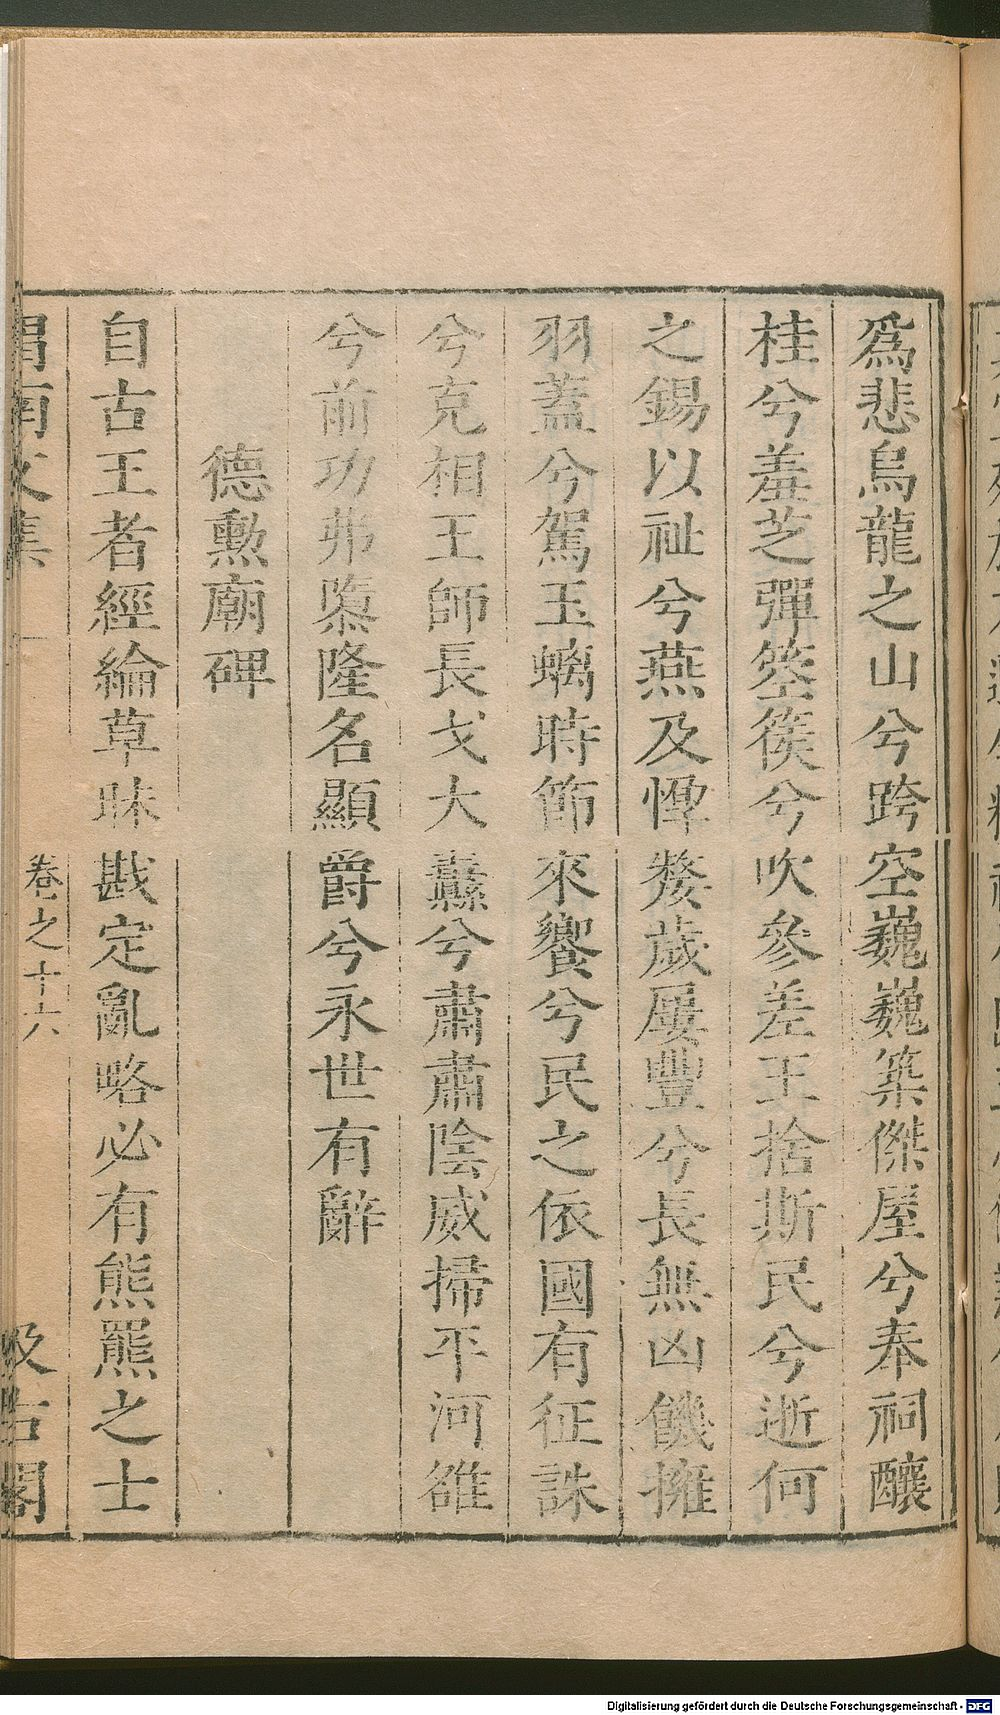 爲悲烏龍之山兮跨空巍巍築傑屋兮奉祠釀
桂兮羞芝彈箜篌兮吹參差王捨斯民兮逝何
之錫以祉兮燕及惸嫠歲屢豐兮長無凶饑擁
羽蓋兮駕玉螭時節來饗兮民之依國有征誅
兮克相王師長戈大纛兮肅肅陰威掃平河雒
兮前功弗隳隆名顯爵兮永世有辭
德勲廟碑
自古王者經綸草昧戡定亂略必有熊羆之士
渭南文集
卷之十六
汲古閣
Digitalisierung gefördert durch die Deutsche Forschungsgemeinschaft - DFG